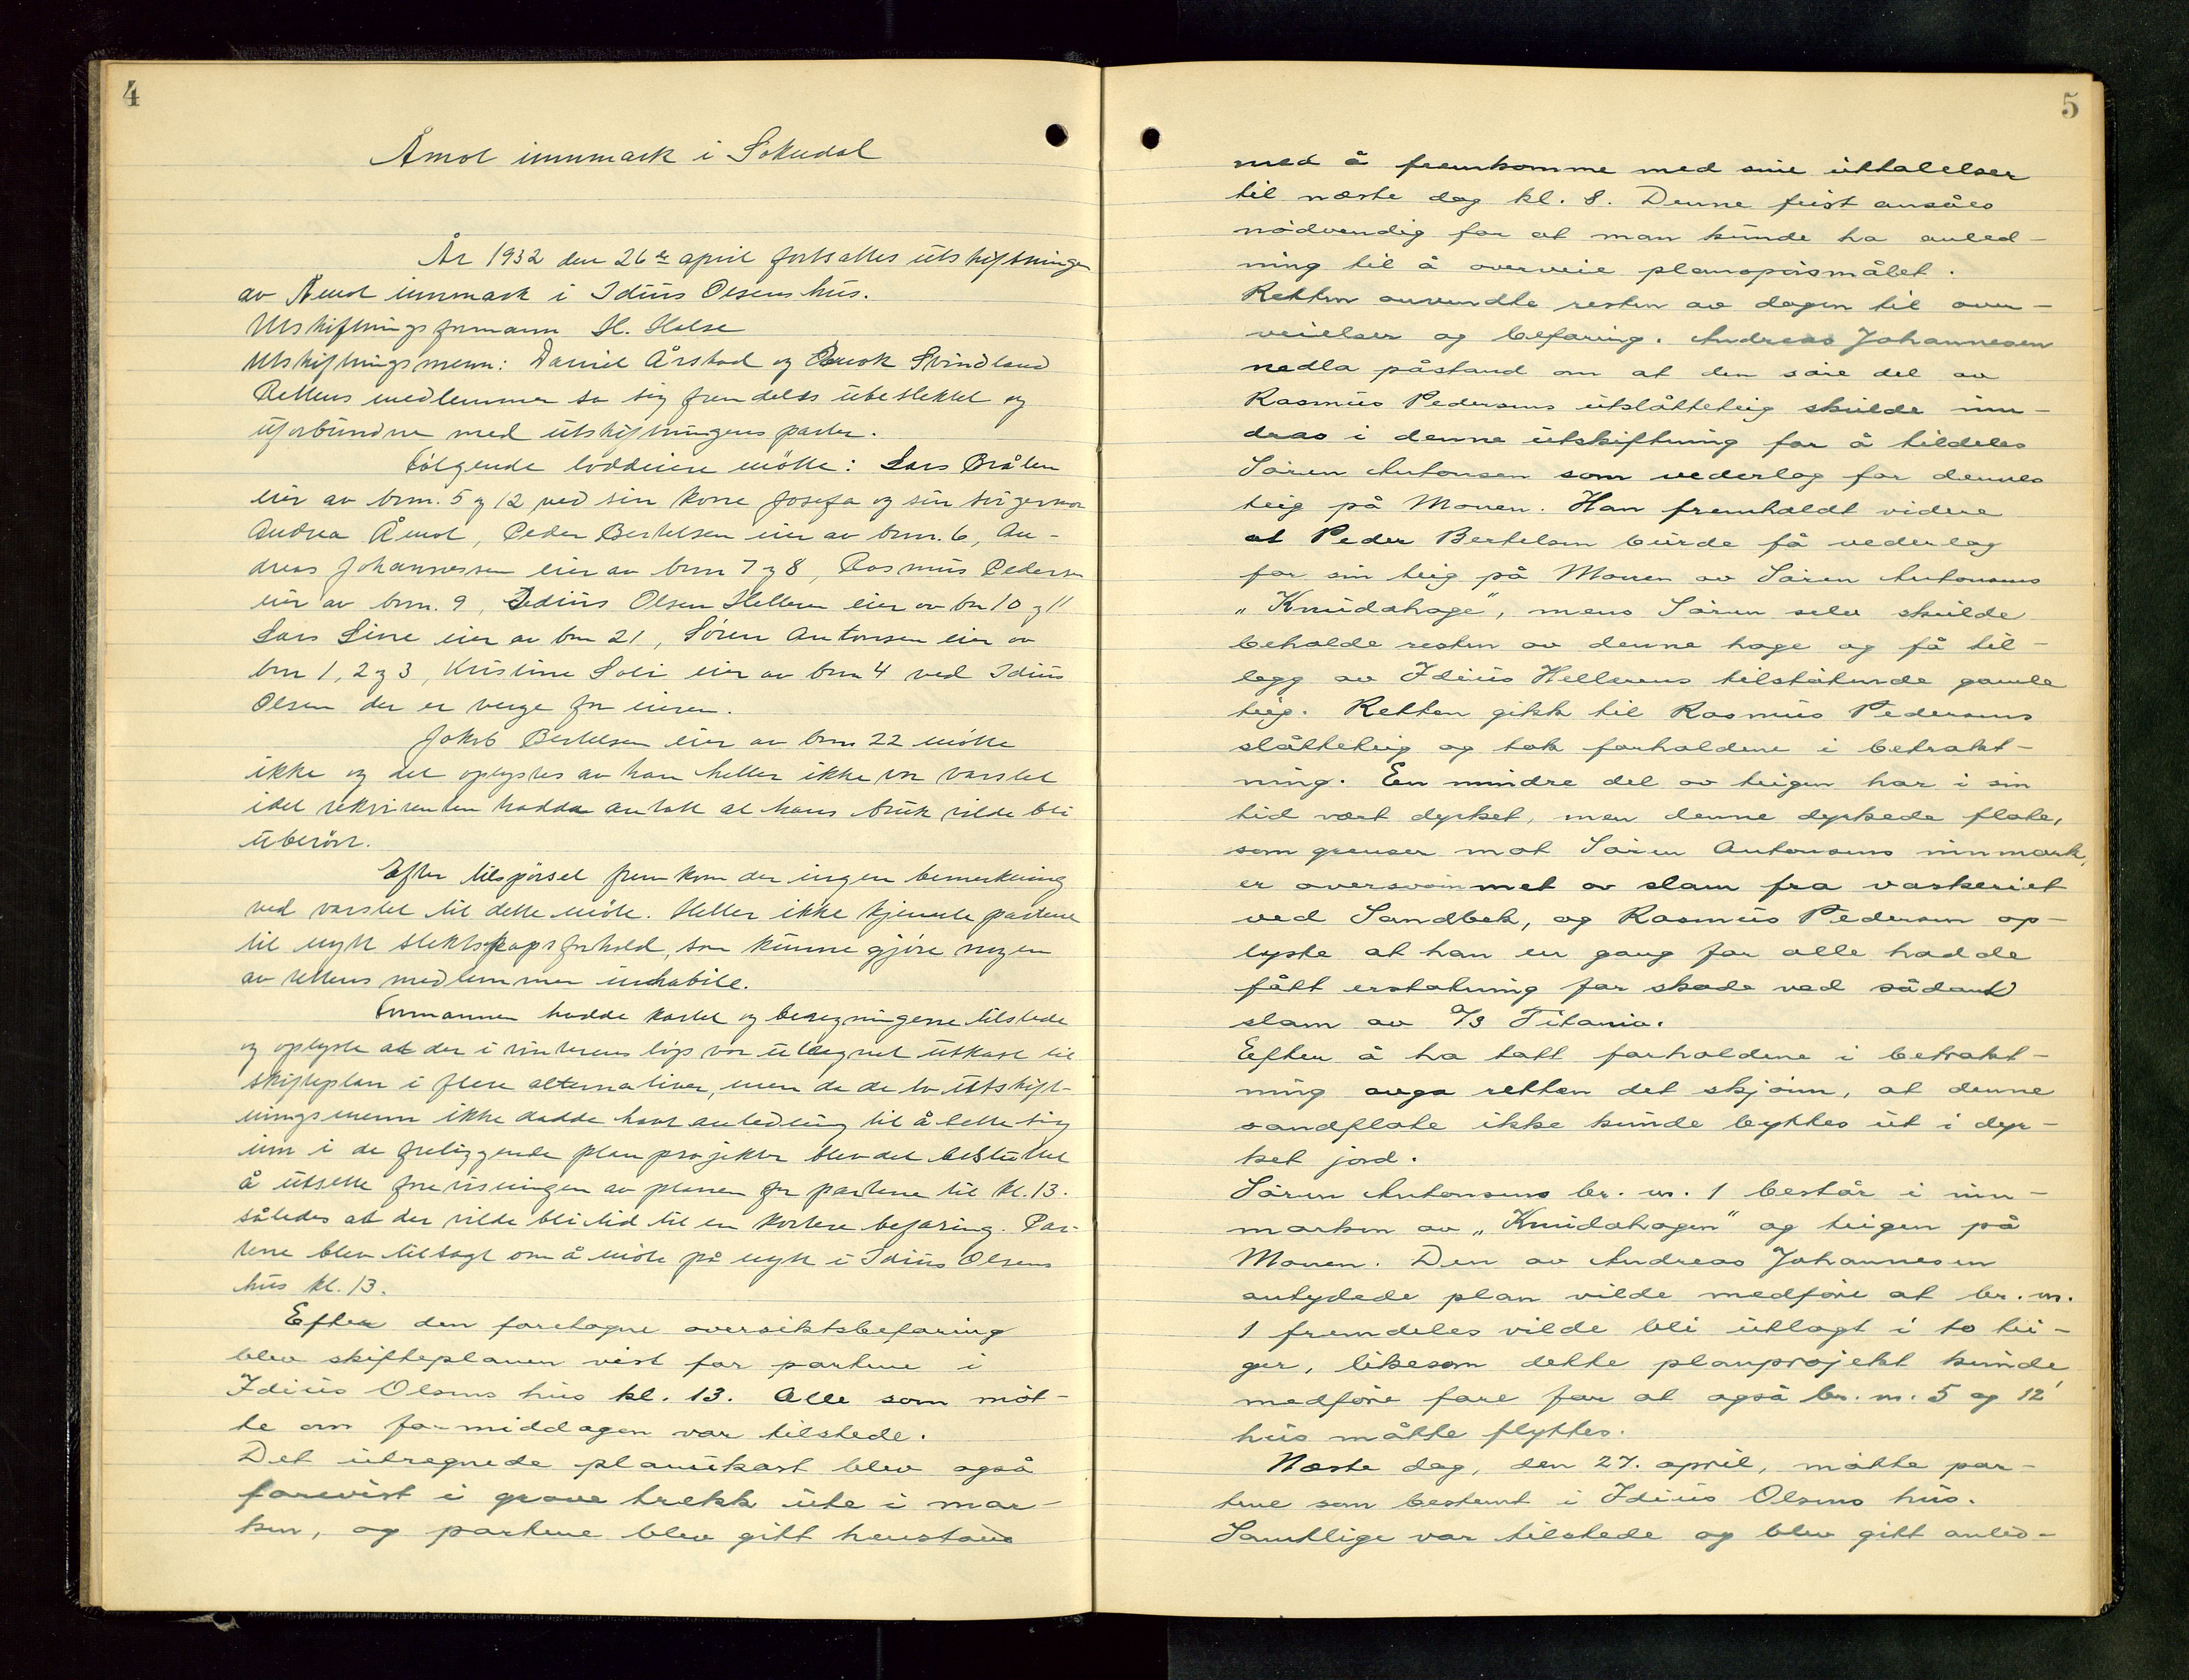 4
Åmot innmark i Sokndal
År 1932 den 26de april fortsattes utskiftningen
av Åmot innmark i Idius Olsens hus.
Utskiftningsformann H. Helse
Utskiftningsmenn: Daniel Årstad og Enok Svindland
Rettens medlemmer sa sig fremdeles ubeslektet og
uforbundne med utskiftningens parter.
Følgende loddeiere møtte: Lars Bråten
eier av brnr. 5 og 12 ved sin kone Josefa og sin svigermor
Andrea Åmot, Peder Bertelsen eier av brnr. 6, An-
dreas Johannessen eier av brnr 7 og 8, Rasmus Pedersen
eier av brnr. 9, Idius Olsen Helleren eier av bn 10 og 11
Lars Line eier av bn 21, Søren Antonsen eier av
bnr 1, 2 og 3, Kristine Soli eier av bnr 4 ved Idius
Olsen der er verge for eieren.
Jakob Bertelsen eier av bnr 22 møtte
ikke og det oplystes av han heller ikke var varslet
idet rekvirenten hadde antatt at hans bruk vilde bli
uberørt.
Efter tilspørsel fremkom der ingen bemerkning
ved varslet til dette møte. Heller ikke kjente partene
til nytt slektskapsforhold, som kunne gjøre nogen
av rettens medlemmer inhabile.
Formannen hadde kartet og beregningene tilstede
og oplyste at der i vinterens løp var utregnet utkast til
skifteplan i flere alternativer, men da de to utskift-
ningsmenn ikke hadde havt anledning til å sette sig
inn i de foreliggende planprojekter blev det besluttet
å utsette forevisningen av planen for partene til kl. 13.
således at der vilde bli tid til en kortere befaring. Par-
tene blev tilsagt om å møte på nytt i Idius Olsens
hus kl. 13.
Efter den foretagne oversiktsbefaring
blev skifteplanen vist for partene i
Idius Olsens hus kl. 13. Alle som møt-
te om formiddagen var tilstede.
Det utregnede planutkast blev også
forevist i grove trekk ute i mar-
ken, og partene blev gitt henstand
5
med å fremkomme med sine uttalelser
til næste dag kl. 8. Denne frist ansåes
nødvendig for at man kunde ha anled-
ning til å overveie planspørsmålet.
Retten anvendte resten av dagen til over-
veielser og befaring. Andreas Johannesen
nedla påstand om at den søre del av
Rasmus Pedersens utslåtteteig skulde inn-
dras i denne utskiftning for å tildeles
Søren Antonsen som vederlag for dennes
teig på Monen. Han fremholdt videre
at Peder Bertelsen burde få vederlag
for sin teig på Monen av Søren Antonsens
„Knudahage", mens Søren selv skulde
beholde resten av denne hage og få til-
legg av Idius Hellerens tilstøtende gamle
teig. Retten gikk til Rasmus Pedersens
slåtteteig og tok forholdene i betrakt-
ning. En mindre del av teigen har i sin
tid vært dyrket, men denne dyrkede flate,
som grenser mot Søren Antonsens innmark,
er oversvømmet av slam fra vaskeriet
ved Sandbek, og Rasmus Pedersen op-
lyste at han en gang for alle hadde
fått erstatning for skade ved sådant
slam av A/S Titania.
Efter å ha tatt forholdene i betrakt-
ning avga retten det skjønn, at denne
sandflate ikke kunde byttes ut i dyr-
ket jord.
Søren Antonsens br. nr. 1 består i inn-
marken av „Knudahagen" og teigen på
Monen. Den av Andreas Johannesen
antydede plan vilde medføre at br. nr.
1 fremdeles vilde bli utlagt i to tei-
ger, likesom dette planprojekt kunde
medføre fare for at også br. nr. 5 og 12'
hus måtte flyttes.
Næste dag, den 27. april, møtte par-
tene som bestemt i Idius Olsens hus.
Samtlige var tilstede og blev gitt anled-